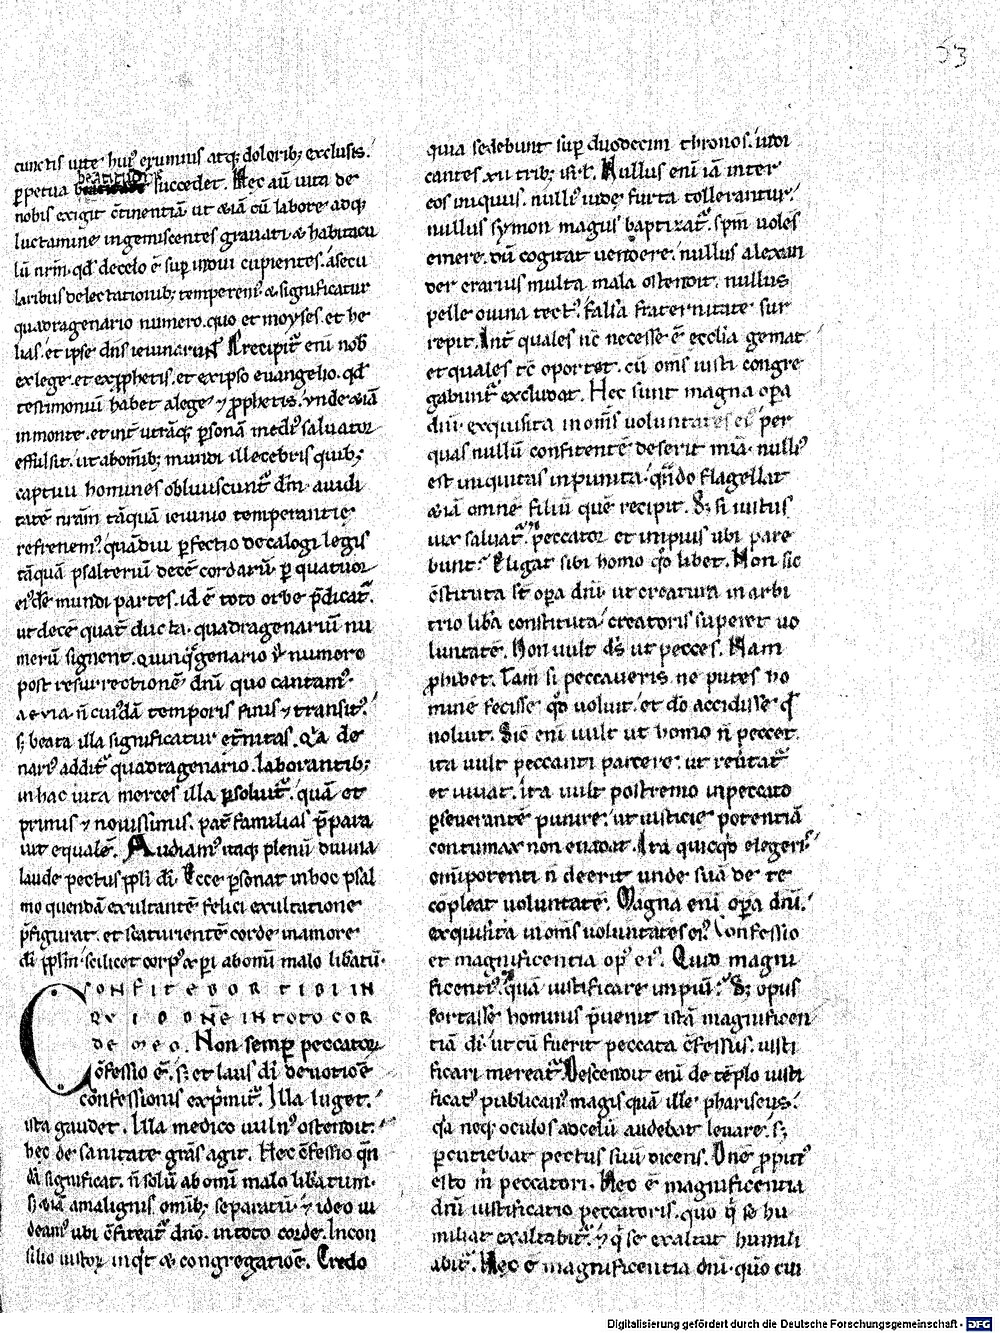 53
cunctis uite hui' erumnis atq; dolorib; exclusis.
beatitudo
ꝑpetua succedet. Nec aū uita de
nobis exigit ɔ̄tinentiā ut &iā cū labore adq;
luctamine ingemiscentes grauati & habitacu
lū nrm̄. qd̄ decelo ē suꝑ indui cupientes. asecu
laribus delectationib; temperem'. & significatur
quadragenario numero. quo et moyses. et he
lias. et ipse dn̄s ieiunarunt. Precipit̄ enī nob̄
exlege. et exꝓphetis. et exipso euangelio. qd̄
testimoniū habet alege 7 ꝓphetis. vnde &iā
inmonte. et int̄ utrāq; ꝑsonā medi' saluator
effulsit. ut abomīb; mundi illecebris quib;
captiui homines obliuiscunt̄ dīn. auidi
tatē nrām tāquā ieiunio temperantię
refrenem'. quādiu ꝑfectio decalogi legis
tāquā psalteriū decē cordarū. ꝑ quatuor
ei'dē mundi partes. id ē toto orbe p̄dicat̄.
ut decē quat̄ ducta. quadragenariū nu
merū signent. Quinq̄genario u̇ numero
post resurrectionē dnī quo cantam'.
aeuia. n̄ cui'dā temporis finis 7 transit'.
s; beata illa significatur et̄nitas. Q'a de
nari' addit̄ quadragenario. laborantib;
inhac uita merces illa ꝑsoluit̄. quā et
primis 7 nouissimis. pat̄ familias p̄para
uit equalē. Audiam' itaq; plenū diuina
laude pectus ppli dī. Ecce ꝑsonat inhoc psal
mo quendā exultantē felici exultatione
p̄figurat. et scaturientē corde inamore
dī pplm̄. scilicet corp' xp̄i abomī malo libatū.
CONFITEBOR TIBI IN
QVID DN̄E IN TOTO COR
DE MEO. Non semꝑ peccatoꝝ
ɔ̄fessio ē. s; et laus dī deuotioē
cōnfessionis exp̄mit̄. Illa luget.
ista gaudet. Illa medico uuln' ostendit.
hec de sanitate grās agit. Hec ɔ̄fessio qn̄
dā significat. n̄ solū ab omī malo libatum.
s; &iā amalignis omīb; separatū. 7 ideo ui
deam' ubi ɔ̄fiteat̄ dn̄o. in toto corde. Incon
silio iustoꝝ inqt̄ & congregatioē. Credo
quia sedebunt suꝑ duodecim thronos. iudi
cantes xii trib; isrl̄. Nullus enī iā inter
eos iniquus. nulli' iudę furta tollerantur.
nullus symon magus baptizat̄. sp̄m uoles
emere. dū cogitat uendere. nullus alexan
der erarius multa mala ostendit. nullus
pelle ouina tect'. falsa fraternitate sur
repit. Int̄ quales nc̄ necesse ē ecclīa gemat
et quales tc̄ oportet. cū om̄s iusti congre
gabunt̄ excludat. Hec sunt magna oꝑa
dnī. exquisita inom̄s uoluntates ei'. per
quas nullū confitentē deserit mīa. nulli'
est iniquitas inpunita. qn̄do flagellat
&iā omnē filiū quē recipit. Et si iustus
uix saluat̄. peccator et impius ubi pare
bunt? Eligat sibi homo qd̄ libet. Non sic
ɔ̄stituta st̄ oꝑa dnī. ut creatura in arbi
trio libā constituta. creatoris superet uo
luntatē. Non uult ds̄ ut pecces. Nam
ꝓhibet. Tam̄ si peccaueris. ne putes ho
minē fecisse qd̄ uoluit. et dō accidisse qd̄
noluit. Sic enī uult ut homo n̄ peccet.
ita uult peccanti parcere. ut reūtat̄
et uiuat. ita uult postremo inpeccato
ꝑseuerantē punire. ut iusticię potentiā
contumax non euadat. Ita quicqd̄ elegeri'.
om̄ipotenti n̄ deerit unde suā de te
copleat uoluntatē. Magna enī oꝑa dnī.
exquisita inom̄s uoluntates ei'. Confessio
et magnificentia op' ei'. Quid magni
ficenti'. quā iustificare impiū? S; opus
fortasse hominis p̄uenit istā magnificen
tiā dī. ut cū fuerit peccata ɔ̄fessus. iusti
ficari mereat̄. Descendit enī de tēplo iusti
ficat' publican' magis quā ille phariseus.
q'a neq; oculos adcelū audebat leuare. s;
ꝑcutiebat pectus suū dicens. Dn̄e ꝓpiti'
esto m̄ peccatori. Hec ē magnificentia
dnī iustificatio peccatoris. quo q' se hu
miliat exaltabit̄. 7 q' se exaltat humili
abit̄. Hec ē magnificentia dnī. qn̄o cui
Digitalisierung gefördert durch die Deutsche Forschungsgemeinschaft - DFG